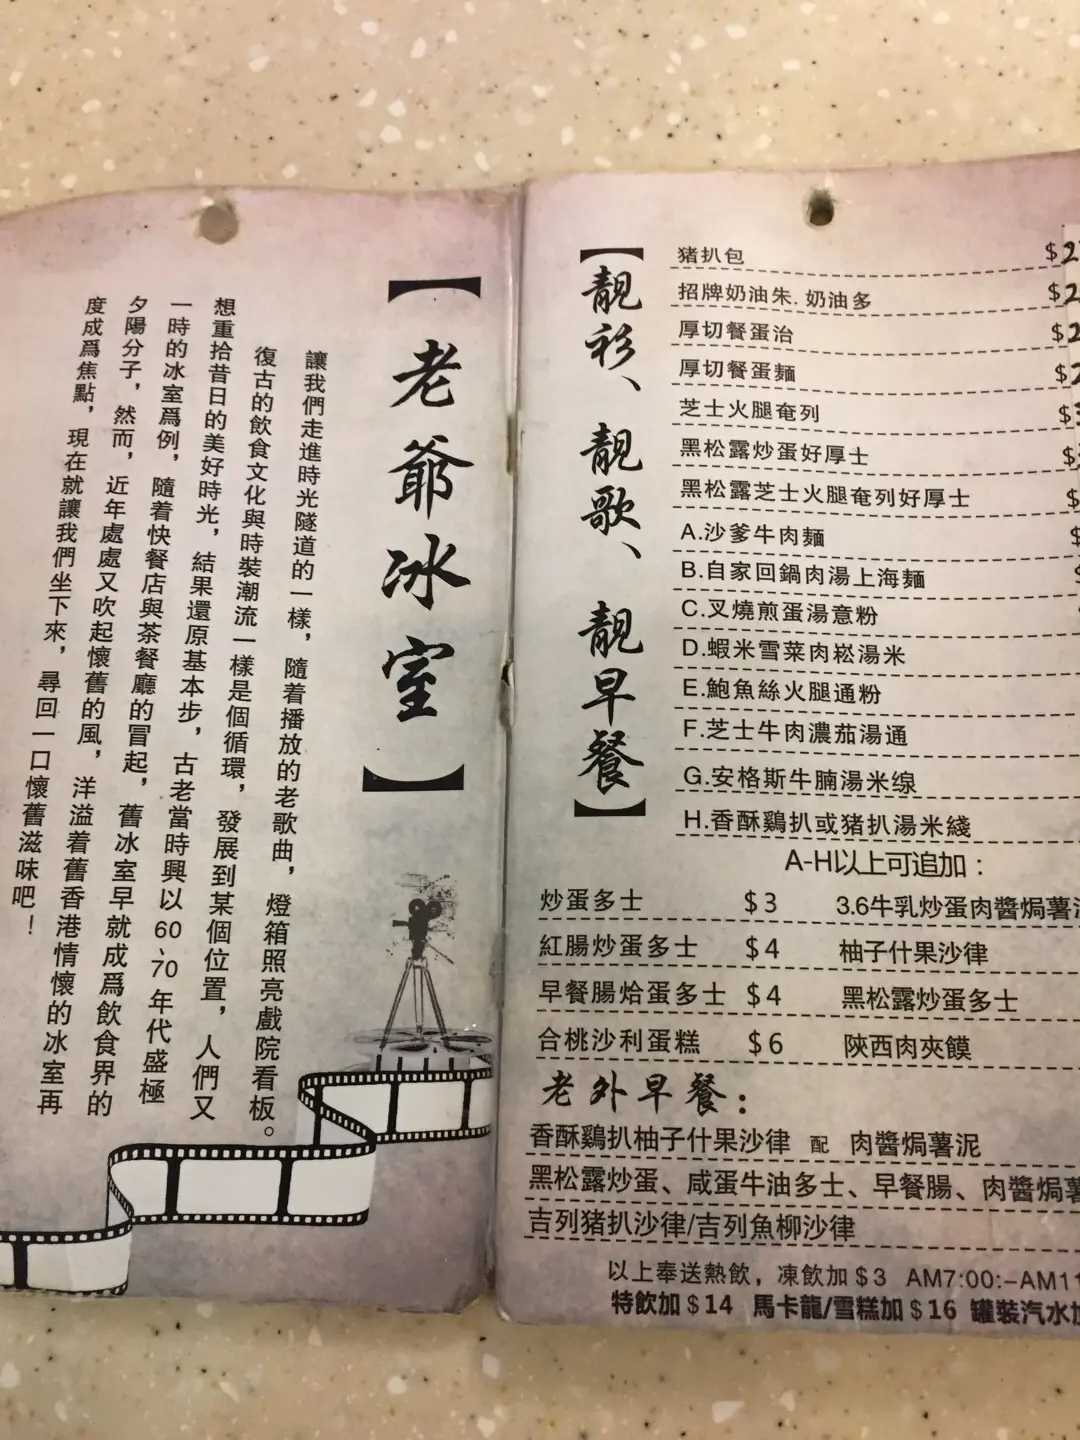 【老爺冰室】
讓我們走進時光隧道的一樣，隨着播放的老歌曲，燈箱照亮戲院看板。
復古的飲食文化與時裝潮流一樣是個循環，發展到某個位置，人們又
想重拾昔日的美好時光，結果還原基本步，古老當時興以60、70年代盛極
一時的冰室爲例，隨着快餐店與茶餐廳的冒起，舊冰室早就成爲飲食界的
夕陽分子，然而，近年處處又吹起懷舊的風，洋溢着舊香港情懷的冰室再
度成爲焦點，現在就讓我們坐下來，尋回一口懷舊滋味吧！
【靚衫、靚歌、靚早餐】
猪扒包
招牌奶油朱．奶油多
厚切餐蛋治
厚切餐蛋麵
芝士火腿奄列
黑松露炒蛋好厚士
黑松露芝士火腿奄列好厚士
A.沙爹牛肉麵
B.自家回鍋肉湯上海麵
C.叉燒煎蛋湯意粉
D.蝦米雪菜肉崧湯米
E.鮑魚絲火腿通粉
F.芝士牛肉濃茄湯通
G.安格斯牛腩湯米缐
H.香酥鷄扒或猪扒湯米綫
A-H以上可追加：
炒蛋多士 $3 3.6牛乳炒蛋肉醬焗薯
紅腸炒蛋多士 $4 柚子什果沙律
早餐腸烚蛋多士 $4 黑松露炒蛋多士
合桃沙利蛋糕 $6 陝西肉夾饃
老外早餐：
香酥鷄扒柚子什果沙律 配 肉醬焗薯泥
黑松露炒蛋、咸蛋牛油多士、早餐腸、肉醬焗薯
吉列猪扒沙律/吉列魚柳沙律
以上奉送熱飲，凍飲加$3 AM7:00:-AM11
特飲加$14 馬卡龍/雪糕加$16 罐裝汽水加